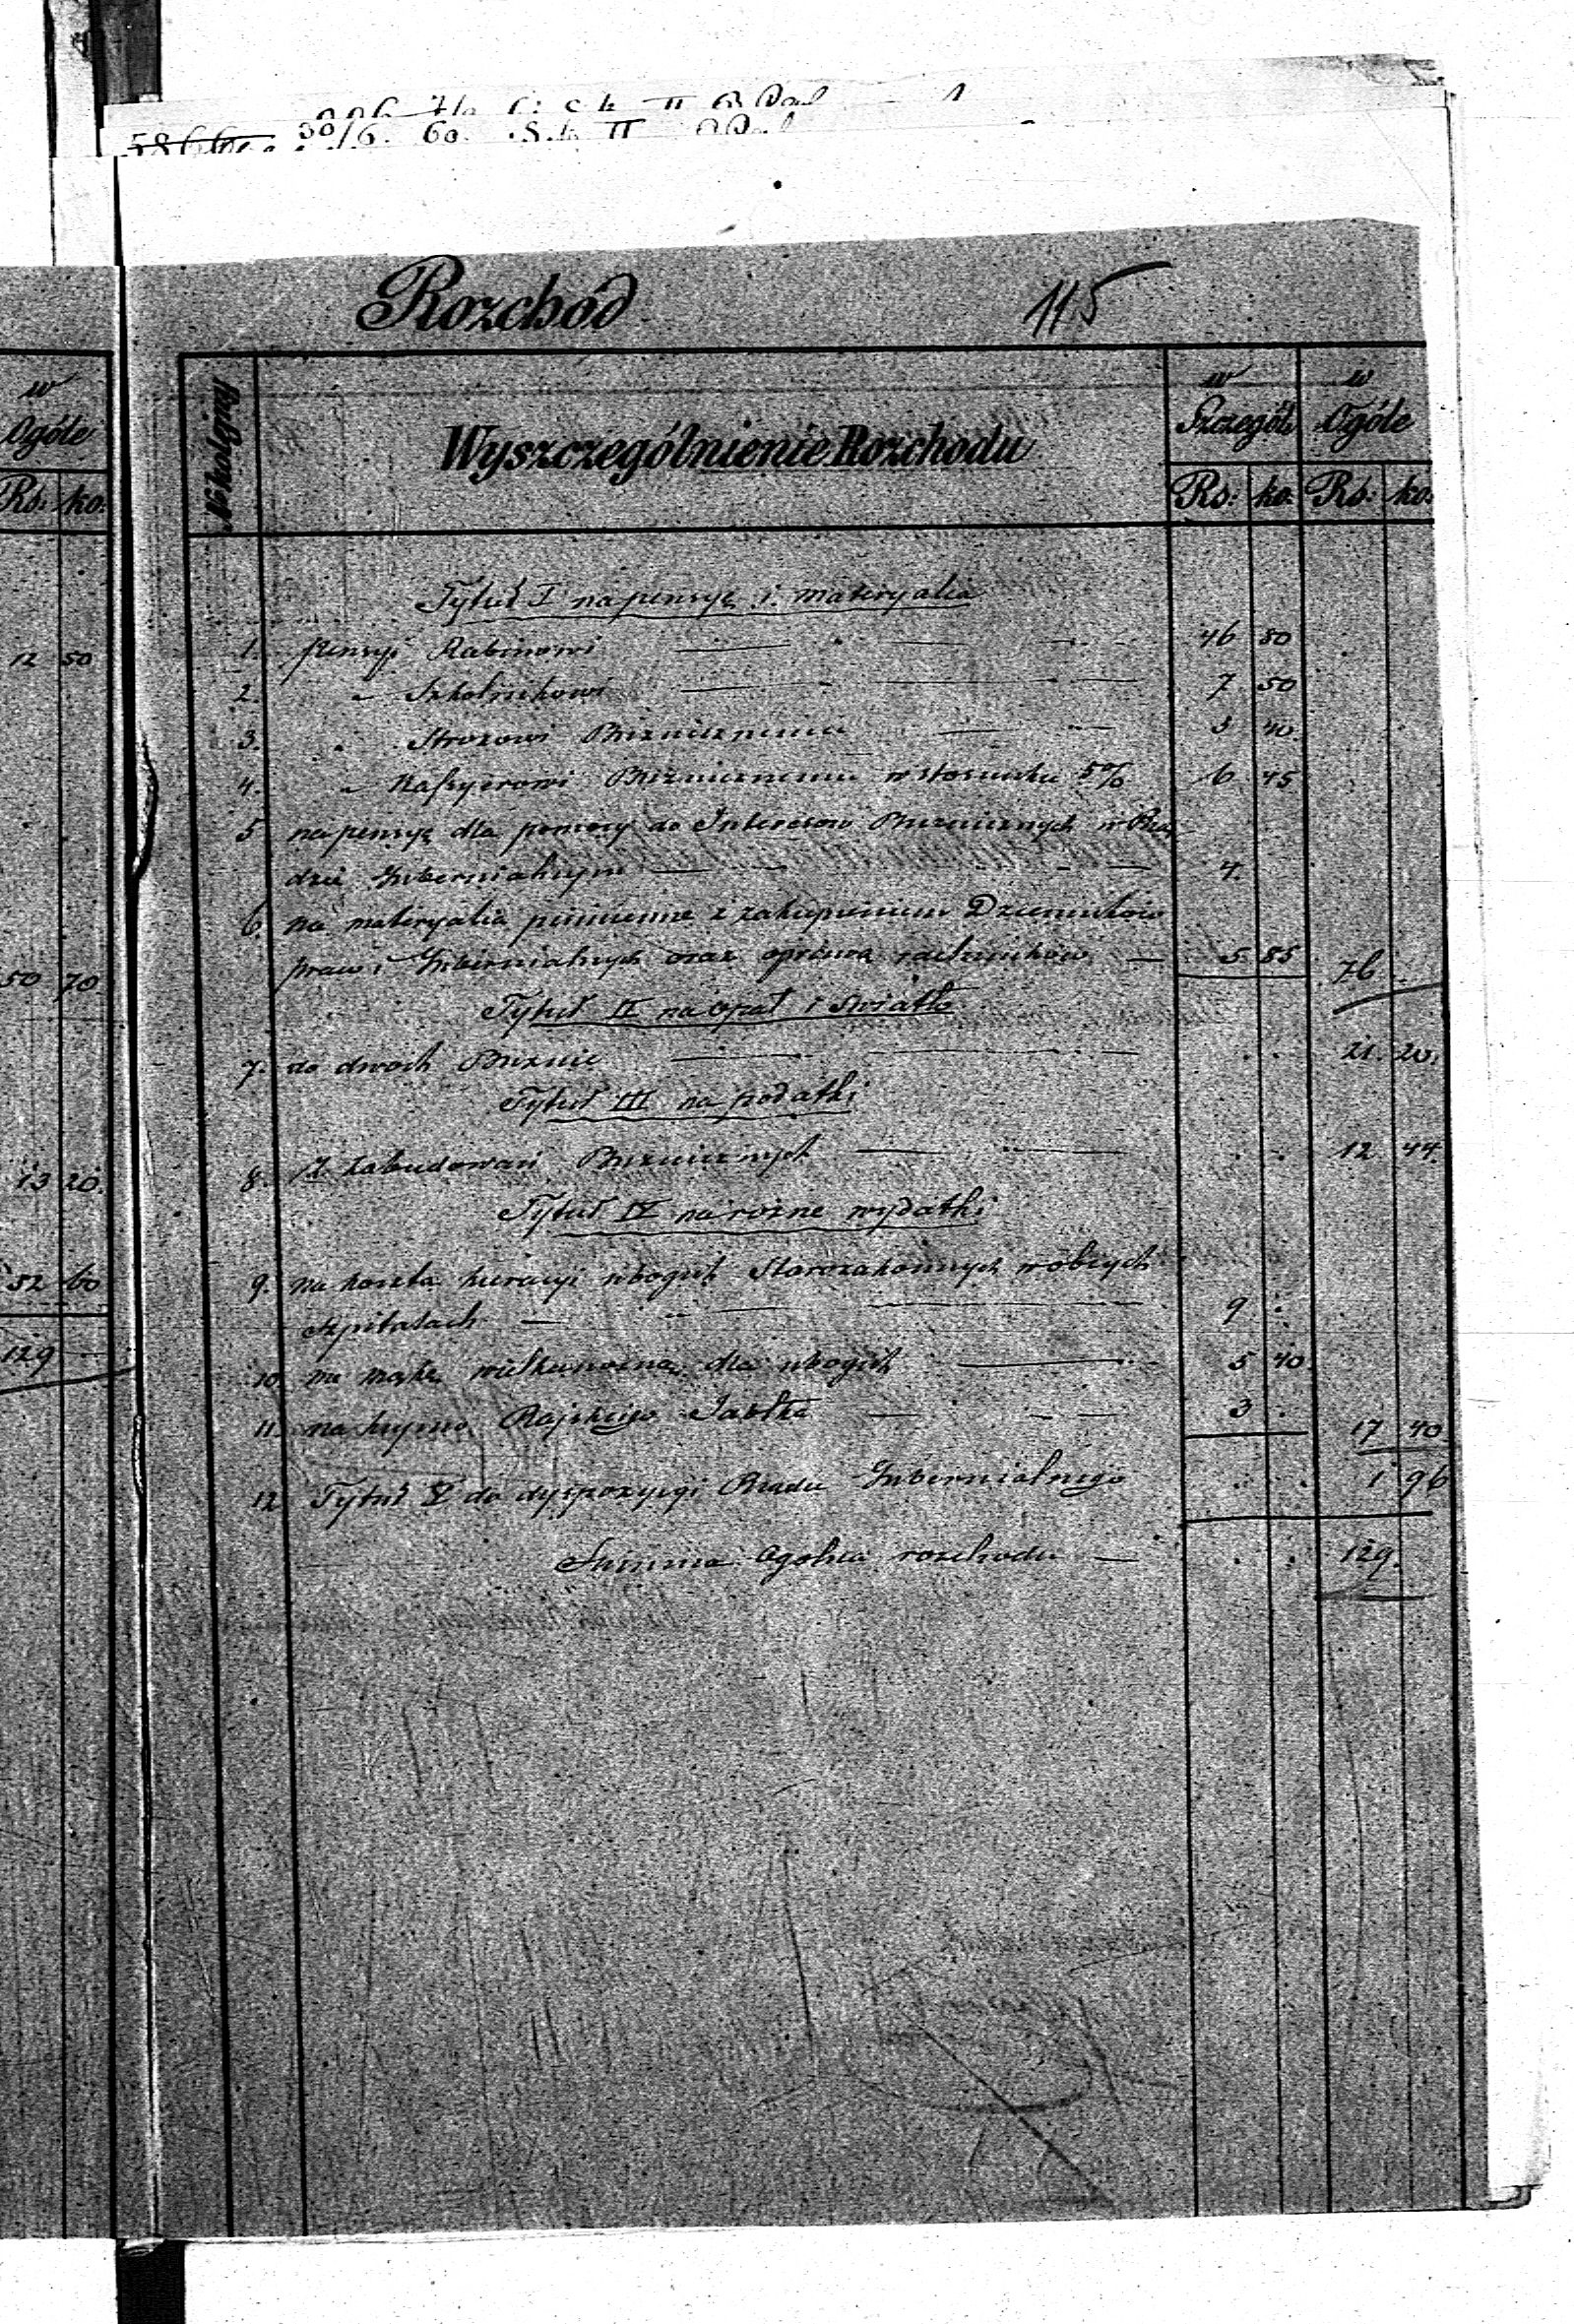 Rozchód
115
№ kolejny
Wyszczególnienie Rozchodu
w Szczególe
w Ogóle
Rs: ko: Rs: ko:
Tytuł I na pensye i materyalia
1. pensyi Rabinowi 46 80
2. " Szkolnikowi 7 50
3. " Strozowi Bożnicznemu 40
4. " Kassyerowi Bożnicznemu w stosunku 5% 6 45
5 na pensyę dla pomocy do Interesow Bożnicznych w Rzą
dzie Gubernialnym 4.
6. na materyalia piśmienne z zakupieniem Dzienników
praw i Gubernialnych oraz oprawą rachunków 5 85 76
Tytuł II na opał i światło
7. do dwoch Bożnic 21. 20.
Tytuł III na podatki
8. Z zabudowań Bożnicznych 12 44.
Tytuł IV na rożne wydatki
9. na koszta kuracyi ubogich Starozakonnych w obcych
Szpitalach 9
10. na mąkę wielkanocną dla ubogich 5 40
11. na kupno Rajskiego Jabłka 3 17 40
12. Tytuł V do dyspozycyi Rządu Gubernialnego 1 96
Summa Ogolna rozchodu 129.
w
Ogóle
Rs: ko:
12 50
50 70
13 20.
52 60
129